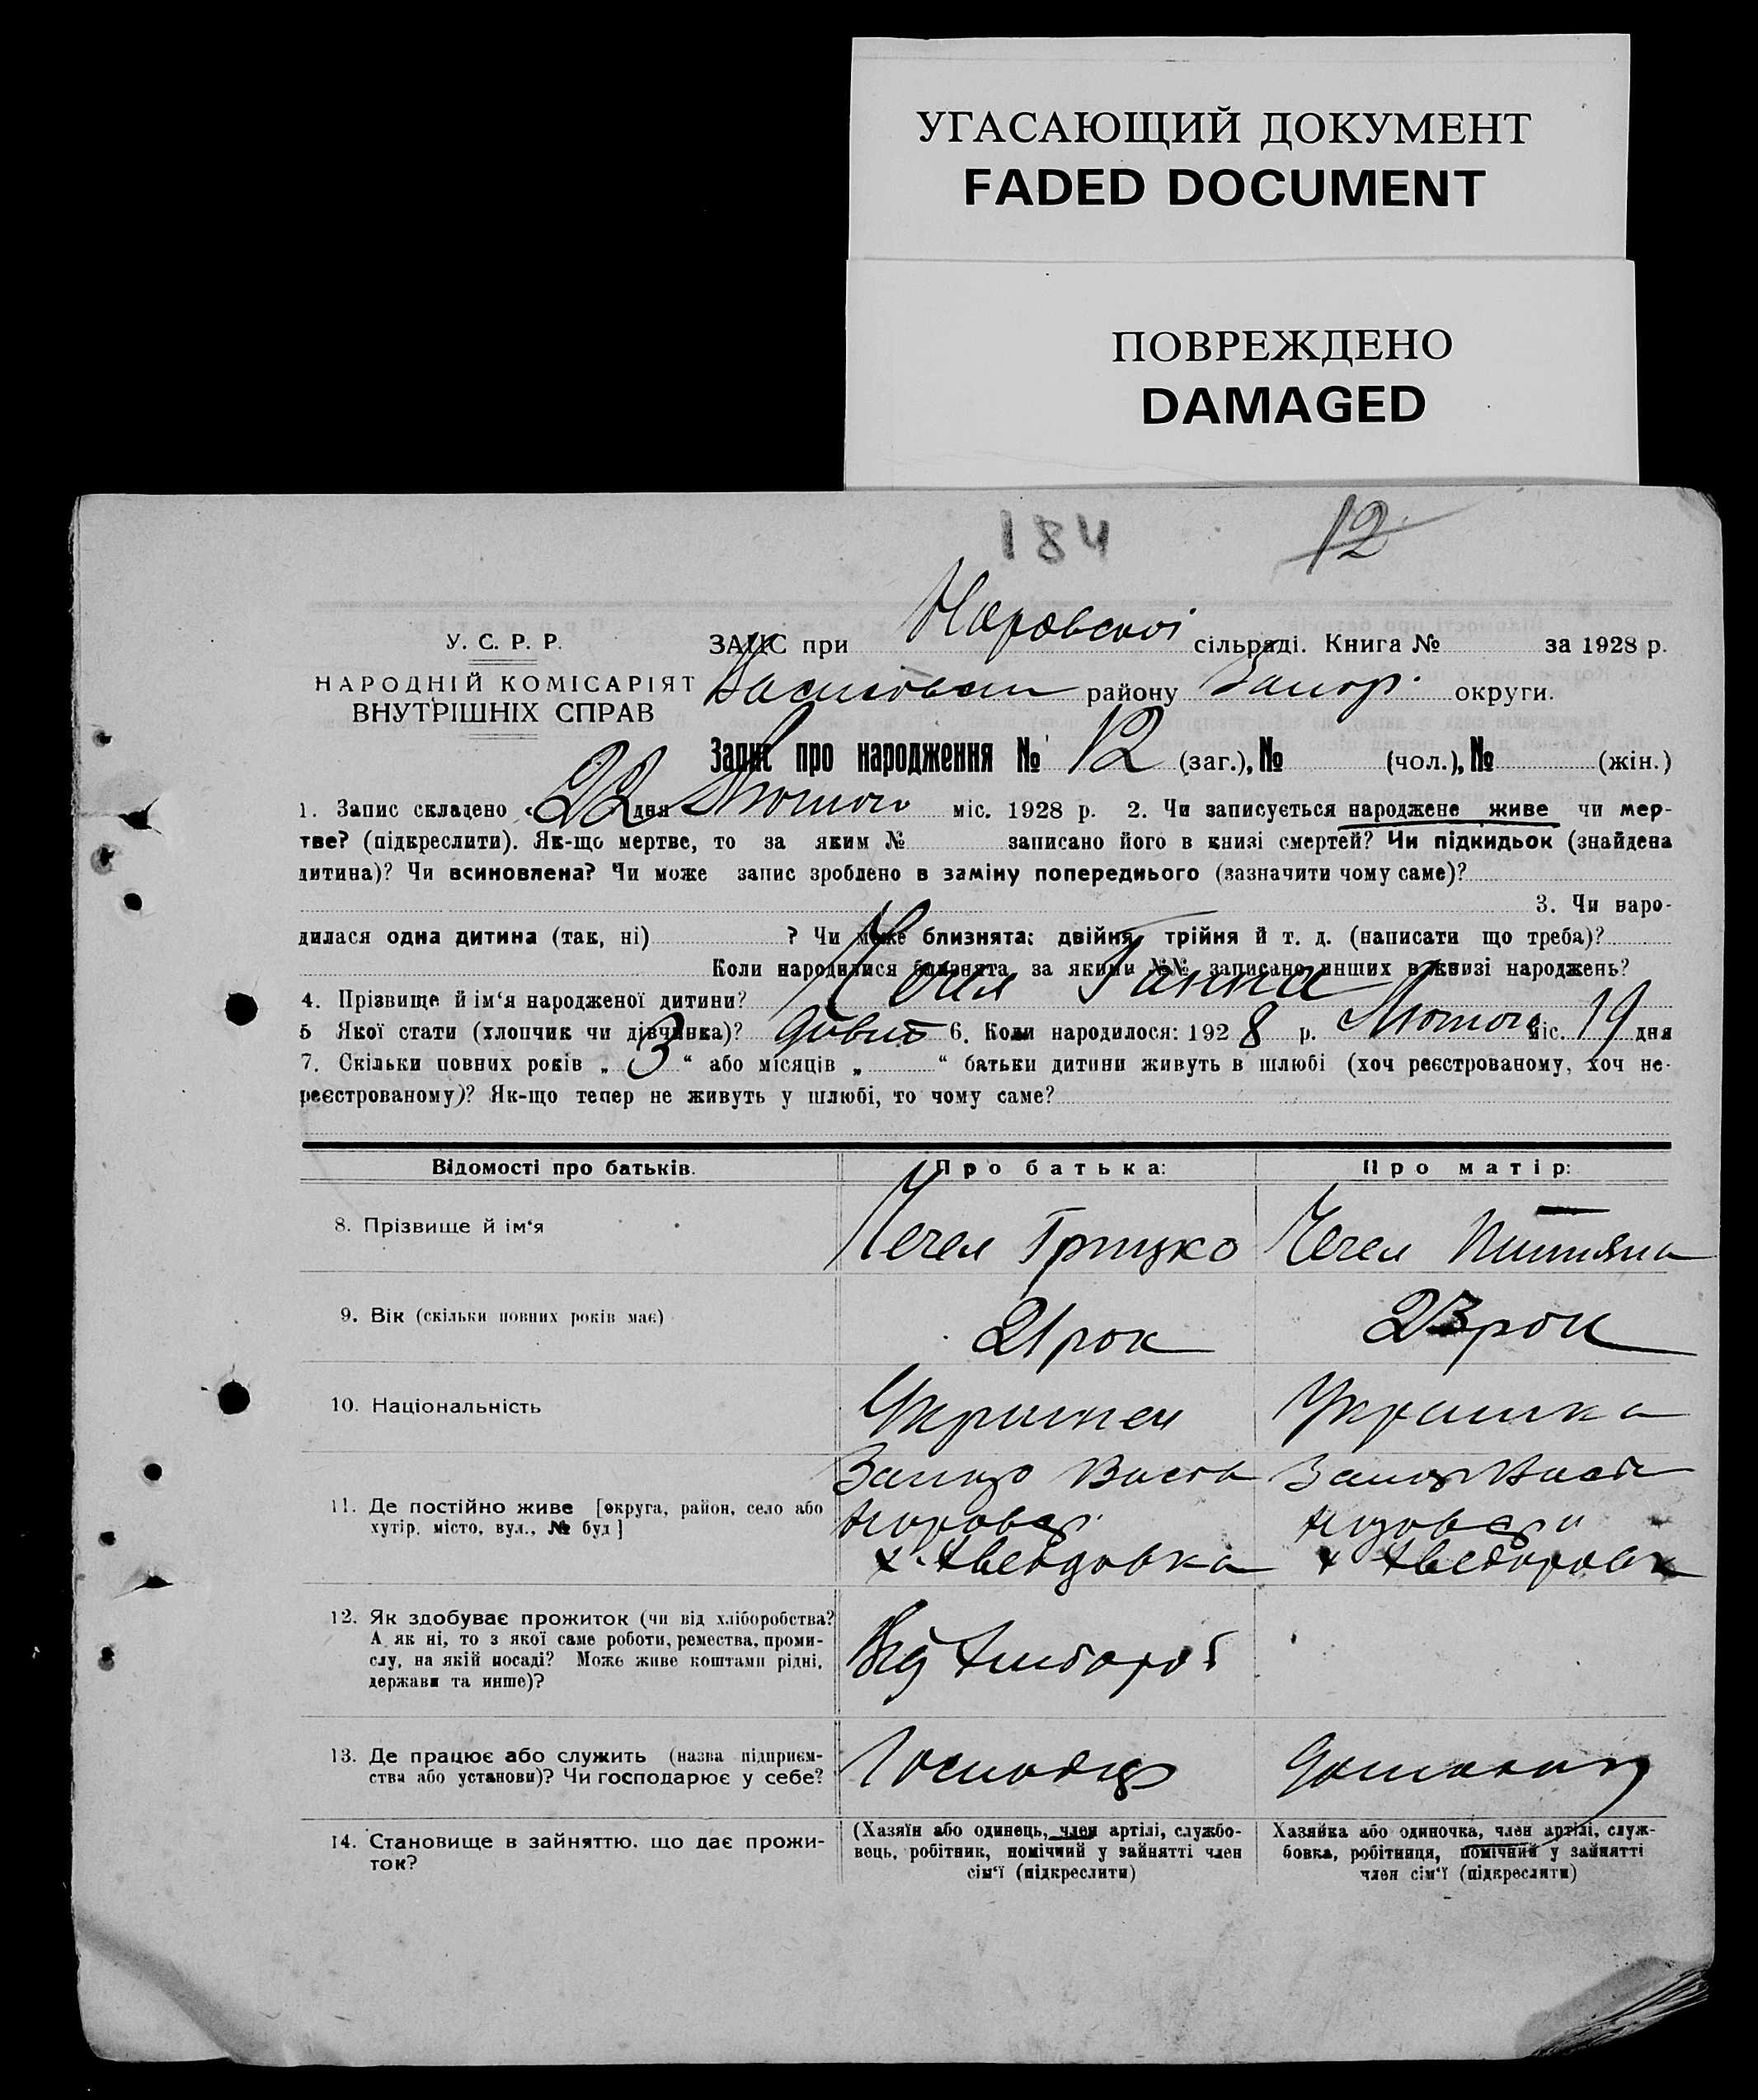 УГАСАЮЩИЙ ДОКУМЕНТ
FADED DOCUMENT
ПОВРЕЖДЕНО
DAMAGED
184
12
У. С. Р. Р.
НАРОДНІЙ КОМІСАРІЯТ
ВНУТРІШНІХ СПРАВ
ЗАПИС при сільраді. Книга № за 1928 р.
району Запор. округи.
Запис про народження № 12 (заг.), № (чол.), № (жін.)
1. Запис складено „22 дня Лютого міс. 1928 р. 2. Чи записується народжене живе чи мер-
тве? (підкреслити). Як-що мертве, то за яким № записано його в книзі смертей? Чи підкидьок (знайдена
дитина)? Чи всиновлена? Чи може запис зроблено в заміну попереднього (зазначити чому саме)?
3. Чи наро-
дилася одна дитина (так, ні) ? Чи може близнята: двійня, трійня й т. д. (написати що треба)?
Коли народилися близнята за якими №№ записано инших в книзі народжень?
4. Прізвище й ім‘я народженої дитини? Ганна
5 Якої стати (хлопчик чи дівчинка)? 6. Коли народилося: 1928 р. Лютого міс. 19 дня
7. Скільки повних років „ 3 “ або місяців „ “ батьки дитини живуть в шлюбі (хоч реєстрованому, хоч не-
реєстрованому)? Як-що тепер не живуть у шлюбі, то чому саме?
Відомості про батьків. Про батька: Про матір:
8. Прізвище й ім‘я Чечел Грицко Чечел
9. Вік (скільки повних років має) 21 рок 23 рок
10. Національність Українец Українка
11. Де постійно живе [округа, район, село або
хутір, місто, вул., № буд]
12. Як здобуває прожиток (чи від хліборобства?
А як ні, то з якої саме роботи, ремества, проми-
слу, на якій посаді? Може живе коштами рідні,
держави та инше)?
Від хлібороб
13. Де працює або служить (назва підприєм-
ства або установи)? Чи господарює у себе?
14. Становище в зайняттю, що дає прожи-
ток?
(Хазяїн або одинець, член артілі, службо-
вець, робітник, помічний у зайнятті член
сім‘ї (підкреслити)
Хазяйка або одиночка, член артілі, служ-
бовка, робітниця, помічний у зайнятті
член сім‘ї (підкреслити)